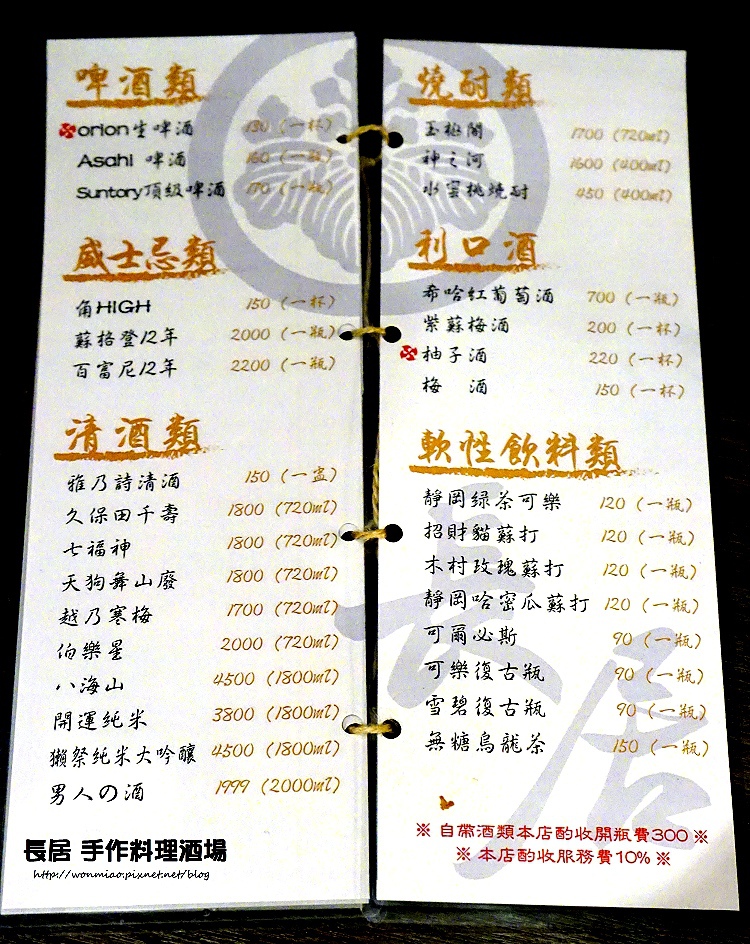 啤酒類
orion生啤酒 130 (一杯)
Asahi 啤酒 160 (一瓶)
Suntory頂級啤酒 170 (一瓶)
威士忌類
角HIGH 150 (一杯)
蘇格登12年 2000 (一瓶)
百富尼12年 2200 (一瓶)
清酒類
雅乃詩清酒 150 (一盅)
久保田千壽 1800 (720ml)
七福神 1800 (720ml)
天狗舞山廢 1800 (720ml)
越乃寒梅 1700 (720ml)
伯樂星 2000 (720ml)
八海山 4500 (1800ml)
開運純米 3800 (1800ml)
獺祭純米大吟釀 4500 (1800ml)
男人の酒 1999 (2000ml)
長居 手作料理酒場
http://wonmiao.pixnet.net/blog
燒酎類
玉極閣 1700 (720ml)
神之河 1600 (400ml)
水蜜桃燒酎 450 (400ml)
利口酒
希哈紅葡萄酒 700 (一瓶)
紫蘇梅酒 200 (一杯)
柚子酒 220 (一杯)
梅 酒 150 (一杯)
軟性飲料類
靜岡绿茶可樂 120 (一瓶)
招財貓蘇打 120 (一瓶)
木村玫瑰蘇打 120 (一瓶)
靜岡哈密瓜蘇打 120 (一瓶)
可爾必斯 90 (一瓶)
可樂復古瓶 90 (一瓶)
雪碧復古瓶 90 (一瓶)
無糖烏龍茶 150 (一瓶)
長居
※ 自帶酒類本店酌收開瓶費300 ※
※ 本店酌收服務費10% ※